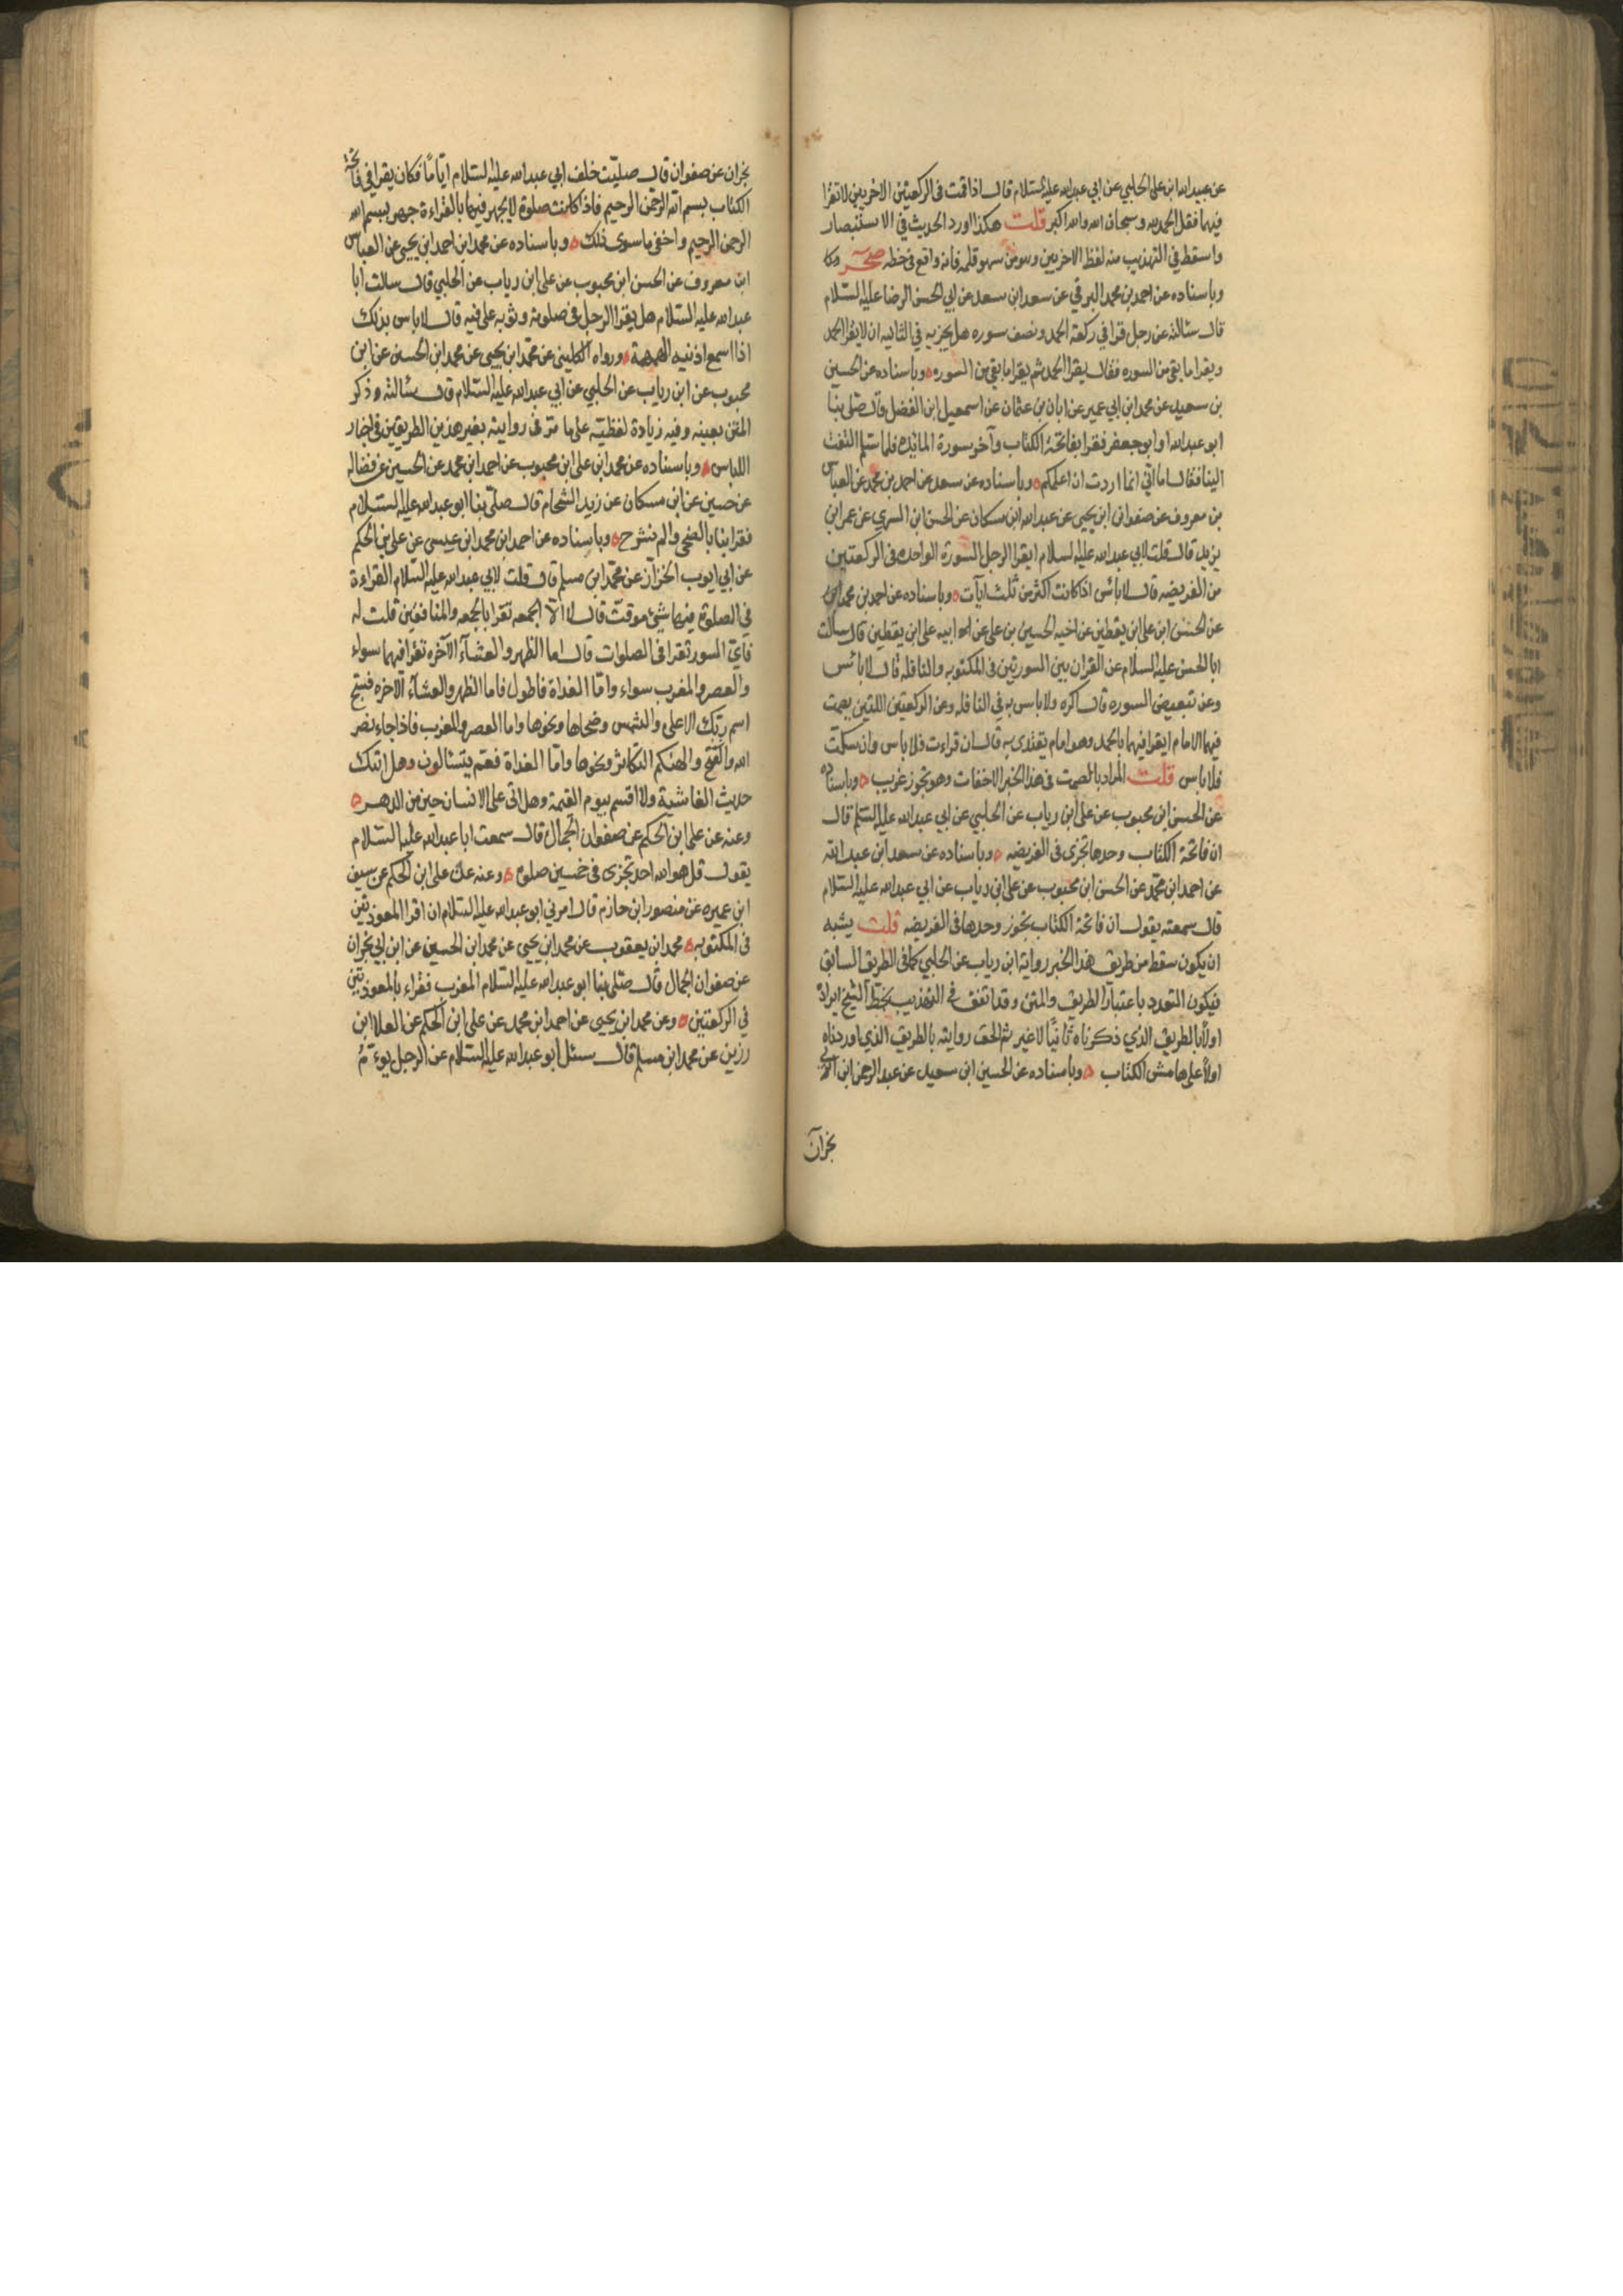 عن عبيد الله ابن على الحلبي عن ابي عبد الله عليه السلام قال اذا قمت في الركعتين الاخريين لا تقرا
فيهما فقل الحمد لله وسبحان الله والله اكبر قلت هكذا اورد الحديث في الاستبصار
واسقط في التهذيب منه لفظ الاخريين وهو من سهو قلمه فانه واقع في خطه صحر
وباسناده عن احمد بن محمد البرقي عن سعد ابن سعد عن ابي الحسن الرضا عليه السلام
قال سئالته عن رجل قرا في ركعة الحمد ونصف سوره هل يجزيه في الثانيه ان لا يقرا الحمد
ويقرا ما بقى من السوره فقال يقرا الحمد ثم يقرا ما بقي من السوره ه وباسناده عن الحسين
بن سعيد عن محمد ابن ابي عمير عن ابان بن عثمان عن اسمعيل ابن الفضل قال صلى بنا
ابو عبد الله او ابو جعفر فقرا بفاتحة الكتاب وآخر سورة المائدة فلما سلم التفت
الينا فقال اما اني انما اردت ان اعلمكم ه وباسناده عن سعد عن احمد بن محمد عن العباس
بن معروف عن صفوان ابن يحيى عن عبد الله ابن مسكان عن الحسن ابن السري عن عمر ابن
يزيد قال قلت لابي عبد الله عليه السلام ايقرا الرجل السورة الواحده في الركعتين
من الفريضه قال لا بائس اذا كانت اكثر من ثلث ايآت ه وباسناده عن احمد بن محمد ابن
عن الحسن ابن على ابن يقطين عن اخيه الحسين بن على عن ابيه على ابن يقطين قال سالت
ابا الحسن عليه السلام عن القران بين السورتين في المكتوبه والنافله قال لا بائس
وعن تبعيض السوره قال اكره ولا باس به في النافله وعن الركعتين اللتين يصمت
فيهما الامام ايقرا فيهما بالحمد وهو امام يقتدى به قال ان قراءت فلا باس وان سكت
فلا باس قلت المراد بالصمت في هذا الخبر الاخفات وهو تجوز غريب ه وباسناده
عن الحسن ابن محبوب عن على ابن رياب عن الحلبي عن ابي عبد الله عليه السلم قال
ان فاتحة الكتاب وحدها تجزى في الفريضه ه وباسناده عن سعد ابن عبد الله
عن احمد ابن محمد عن الحسن ابن محبوب عن على ابن رياب عن ابي عبد الله عليه السلام
قال سمعته يقول ان فاتحة الكتاب تجوز وحدها في الفريضه قلت يشبه
ان يكون سقط من طريق هذا الخبر رواية ابن رياب عن الحلبي كما في الطريق السابق
فيكون التعدد باعتبار الطريق والمتن وقد اتفق في التهذيب بخط الشيخ ايراده
اولا بالطريق الذي ذكرناه ثانيًا لا غير ثم الحق روايته بالطريق الذي اوردناه
اولا على هامش الكتاب ه وباسناده عن الحسين ابن سعيد عن عبد الرحمن ابن ابي
نجران
نجران عن صفوان قال صليت خلف ابي عبد الله عليه السلام ايّامًا فكان يقرا في فاتحة
الكتاب بسم الله الرحمن الرحيم فاذا كانت صلوة لا يجهر فيها بالقراءة جهر ببسم الله
الرحمن الرحيم واخفى ما سوى ذلك ه وباسناده عن محمد ابن احمد ابن يحيى عن العباس
ابن معروف عن الحسن ابن محبوب عن على ابن رياب عن الحلبي قال سالت ابا
عبد الله عليه السلام هل يقرا الرجل في صلوته وثوبه على فيه قال لا باس بذلك
اذا اسمع اذنيه الهمهمة ه ورواه الكليني عن محمد ابن يحيى عن محمد ابن الحسين عن ابن
محبوب عن ابن رياب عن الحلبي عن ابي عبد الله عليه السلام قال سئالته وذكر
المتن بعينه وفيه زيادة لفظيّه على ما مر في روايته بغير هذين الطريقين في اخبار
اللباس ه وباسناده عن محمد ابن على ابن محبوب عن احمد ابن محمد عن الحسين عن فضاله
عن حسين عن ابن مسكان عن زيد الشحام قال صلى بنا ابو عبد الله عليه السلام
فقرا بنا بالضحى والم نشرح ه وباسناده عن احمد ابن محمد ابن عيسى عن على بن الحكم
عن ابي ايوب الخزاز عن محمد ابن مسلم قال قلت لابي عبد الله عليه السلام القراءة
في الصلوة فيها شيء موقت قال لا الا الجمعه تقرا بالجمعه والمنافقين قلت له
فاي السور تقرا في الصلوات قال اما الظهر والعشآء الآخره تقرا فيهما سواء
والعصر والمغرب سواء وامّا الغداة فاطول فاما الظهر والعشآء الاخره فسبح
اسم ربّك الاعلى والشمس وضحاها ونحوها واما العصر والمغرب فاذا جاء نصر
الله والفتح والهيكم التكاثر ونحوها وامّا الغداة فعم يتسئالون وهل اتيك
حديث الغاشية ولا اقسم بيوم القيمة وهل اتى على الانسان حين من الدهر ه
وعنه عن على ابن الحكم عن صفوان الجمال قال سمعت ابا عبد الله عليه السلام
يقول قل هو الله احد تجزى في خمسين صلوة ه وعنه عن على ابن الحكم عن سيف
ابن عميره عن منصور ابن حازم قال امرني ابو عبد الله عليه السلام ان اقرا المعوذتين
في المكتوبه ه محمد ابن يعقوب عن محمد ابن يحيى عن محمد ابن الحسين عن ابن ابي نجران
عن صفوان الجمال قال صلى بنا ابو عبد الله عليه السلام المغرب فقراء بالمعوذتين
في الركعتين ه وعن محمد ابن يحيى عن احمد ابن محمد عن على ابن الحكم عن العلا ابن
رزين عن محمد ابن مسلم قال سئل ابو عبد الله عليه السلام عن الرجل يوءمّ